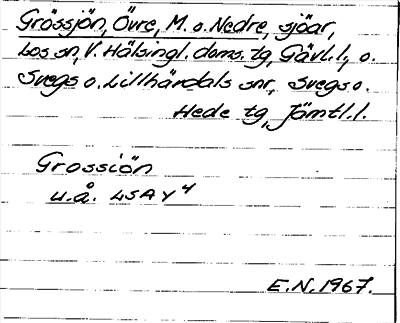 Grössjön, Övre, M. o. Nedre, sjöar,
Los sn, V. Hälsingl. doms. tg, Gävl. l., o.
Svegs o. Lillhärdals snr, Svegs o.
Hede tg, Jämtl. l.
Grossiön
u.å. LSA Y 4
E.N. 1967.